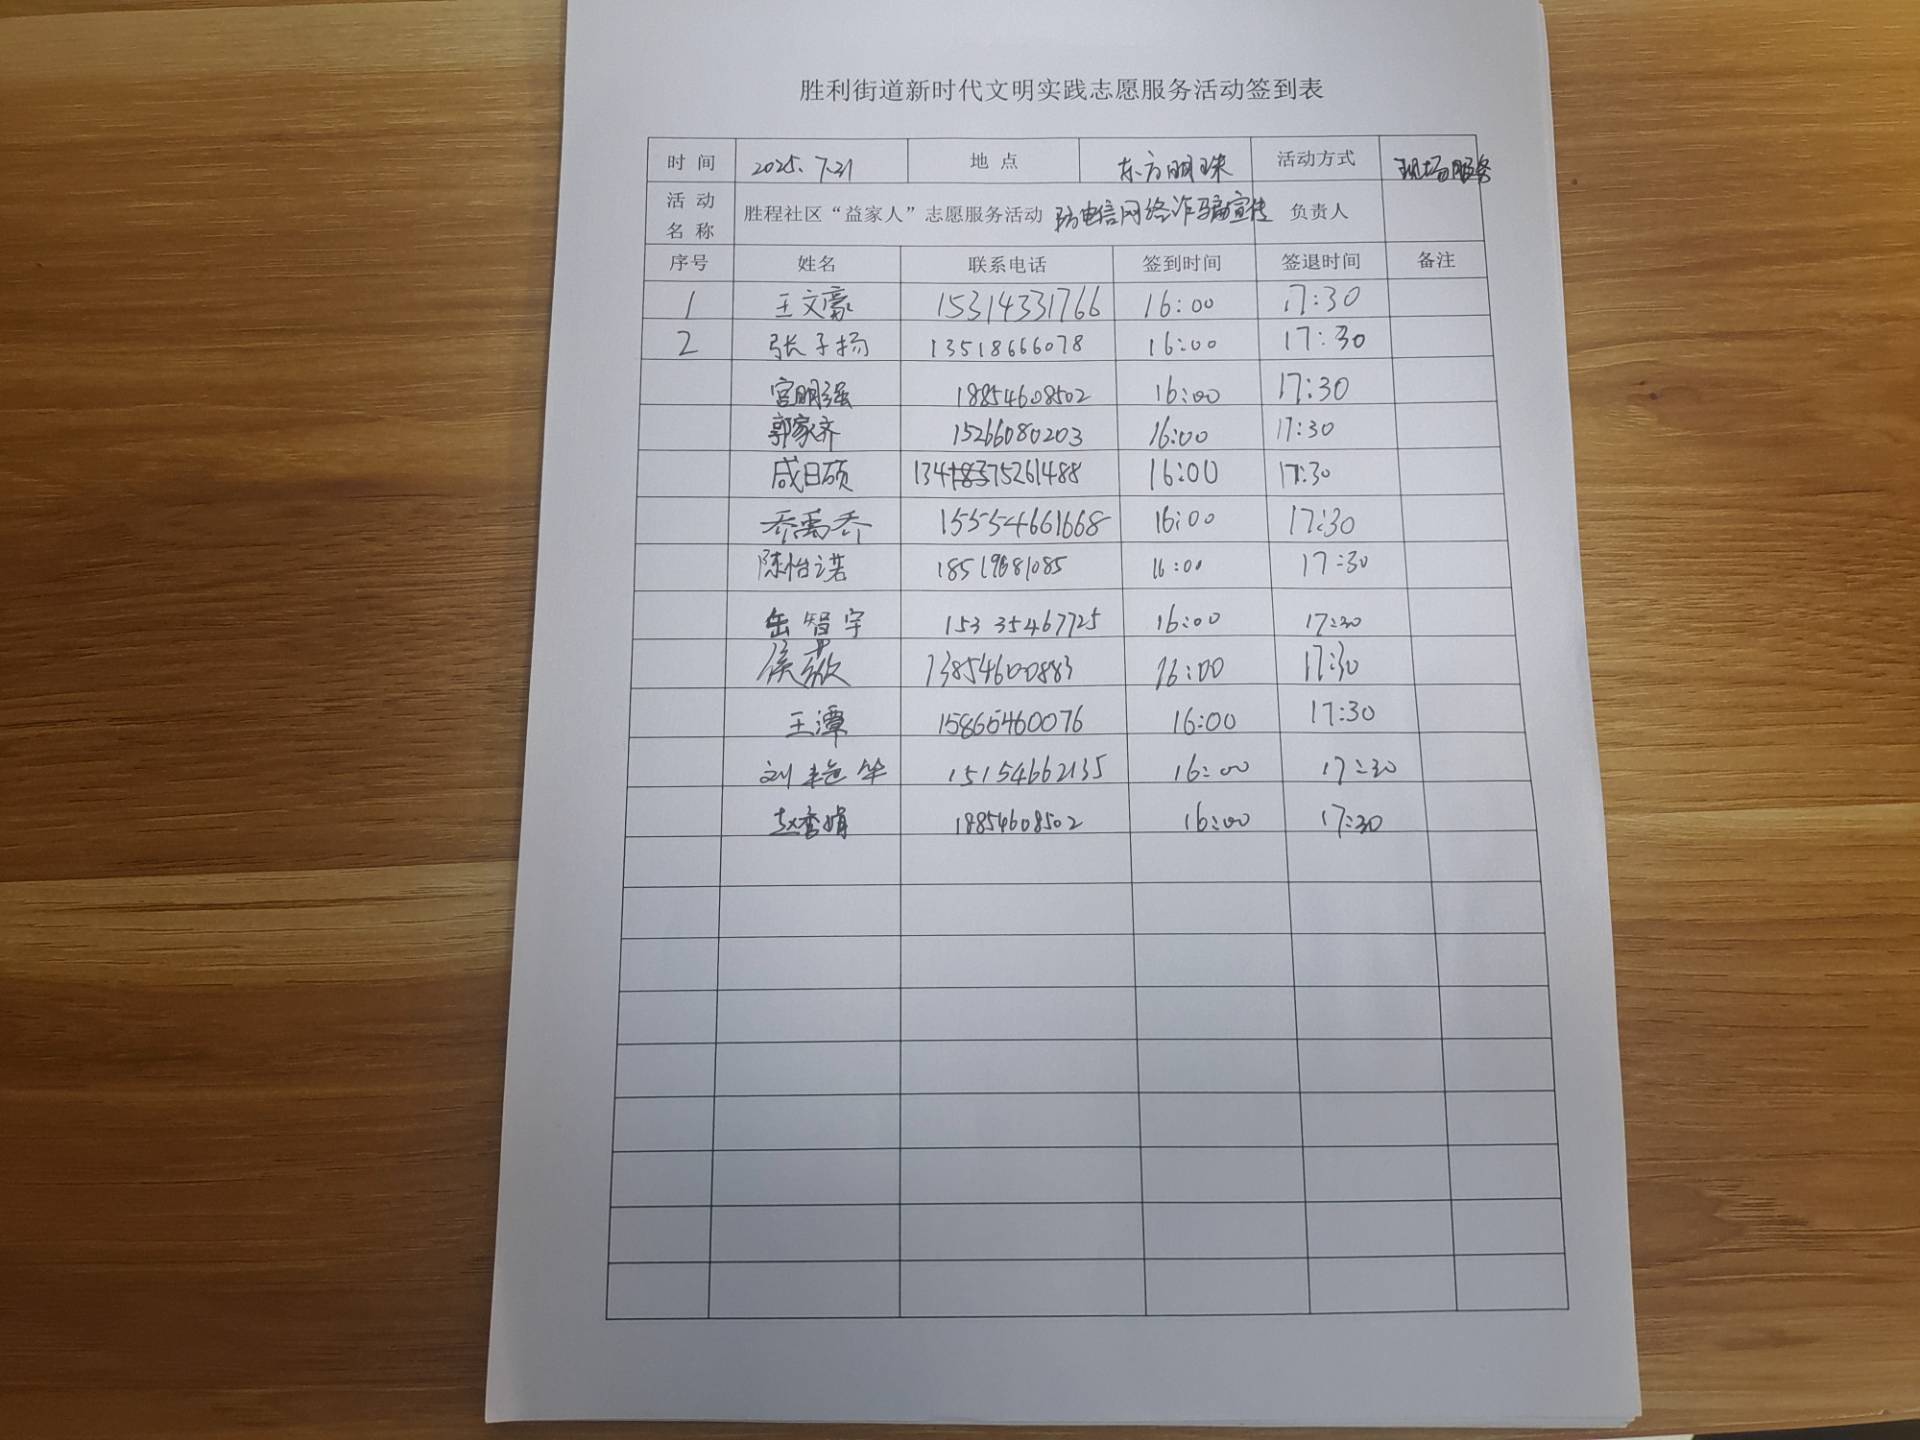 胜利街道新时代文明实践志愿服务活动签到表
时 间 2025.7.21 地 点 东方明珠 活动方式 现场服务
活 动 名 称 胜程社区“益家人”志愿服务活动 防电信网络诈骗宣传 负责人
序号 姓名 联系电话 签到时间 签退时间 备注
1 王文豪 15314331766 16:00 17:30
2 张子扬 13518666078 16:00 17:30
宫明强 18854608502 16:00 17:30
郭家齐 15266080203 16:00 17:30
成日硕 16:00 17:30
乔禹乔 15554661668 16:00 17:30
陈怡诺 16:00 17:30
岳智宇 15335467725 16:00 17:30
侯 13854600883 16:00 17:30
王潭 15865460076 16:00 17:30
刘艳华 15154662135 16:00 17:30
赵秀娟 18854608502 16:00 17:30